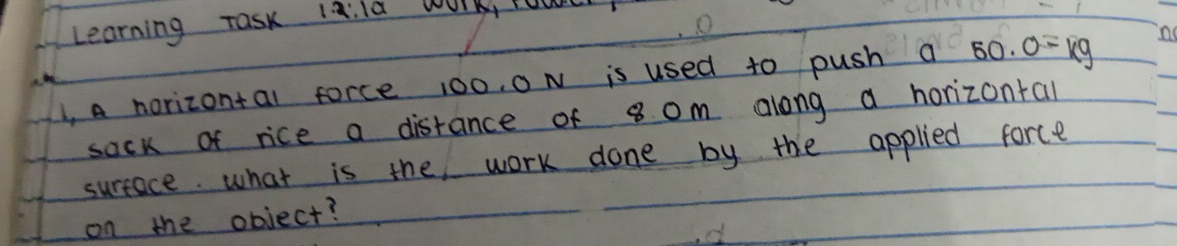 Learning Task 12.1a Work,
1, A horizontal force 100.0N is used to push a 50.0-kg
sack of rice a distance of 8.0m along a horizontal
surface. what is the work done by the applied force
on the object?